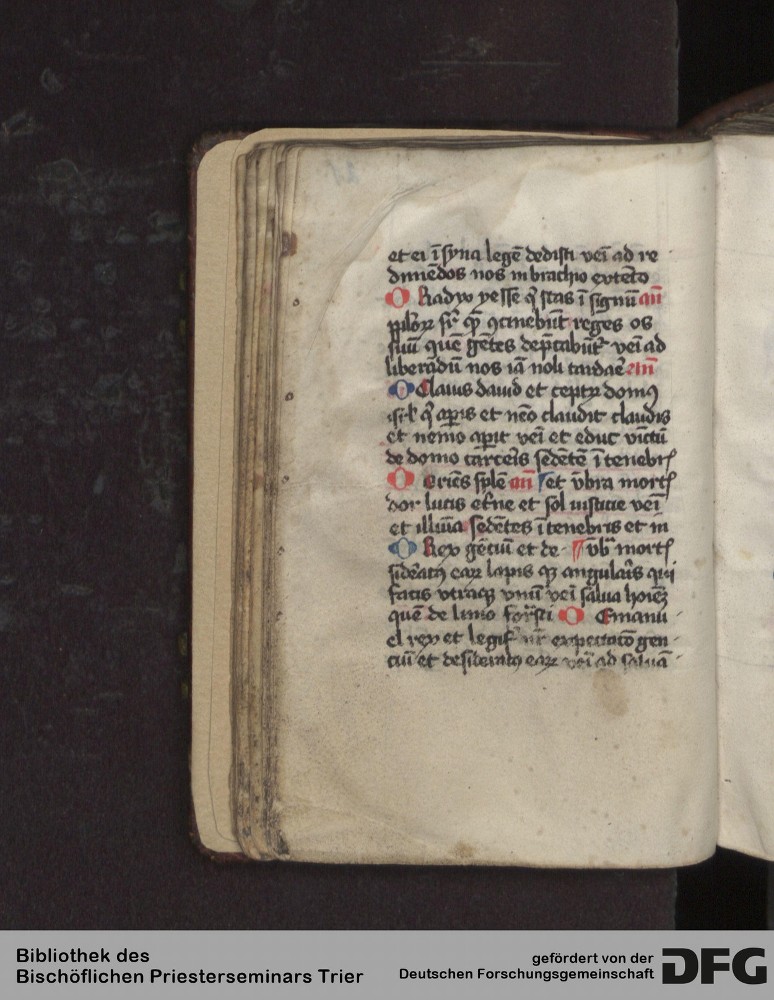 et ei ī syna legē dedisti veī ad re
dimēdos nos in brachio extēto
O Radyx yesse q̄ stas ī signū an̄
pplōꝝ sr̄ qē ꝯtinebūt reges os
suū quē gētes dep̄cabūt᷑ veī ad
liberādū nos iā noli tardaē an̄
O Clauis dauid et ceptꝝ domꝰ
isrl̄ q̄ apis et nēo claudit claudis
et nemo apit veī et educ vīctū
de domo carceīs sedētē ī tenebrꝭ
O Oriēs splē an̄ et vbra mortꝭ
dor lucis et͛ne et sol iusticie veī
et illuīa sedētes ī tenebris et in
O Rex gētiū et de vb̄ mortꝭ
sid͛atꝰ eaꝝ lapis qꝫ angulaīs qui
facis vtraqꝫ vnū veī salua hoīeꝫ
quē de limo formsti O Emanu
el rex et legif nr̄ expectatō gen
tiū et desideratꝰ eaꝝ veī ad saluā
Bibliothek des
Bischöflichen Priesterseminars Trier
gefördert von der
Deutschen Forschungsgemeinschaft DFG